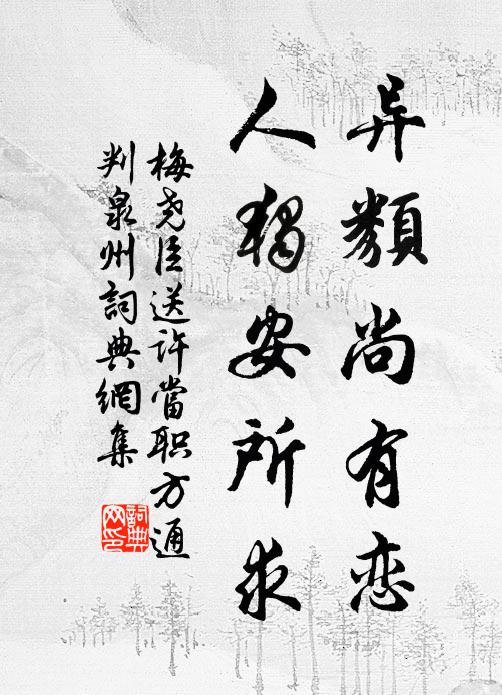 异類尚有恋
人獨安所求
梅尧臣送许當职方通
判泉州詞典網集
詞典网印